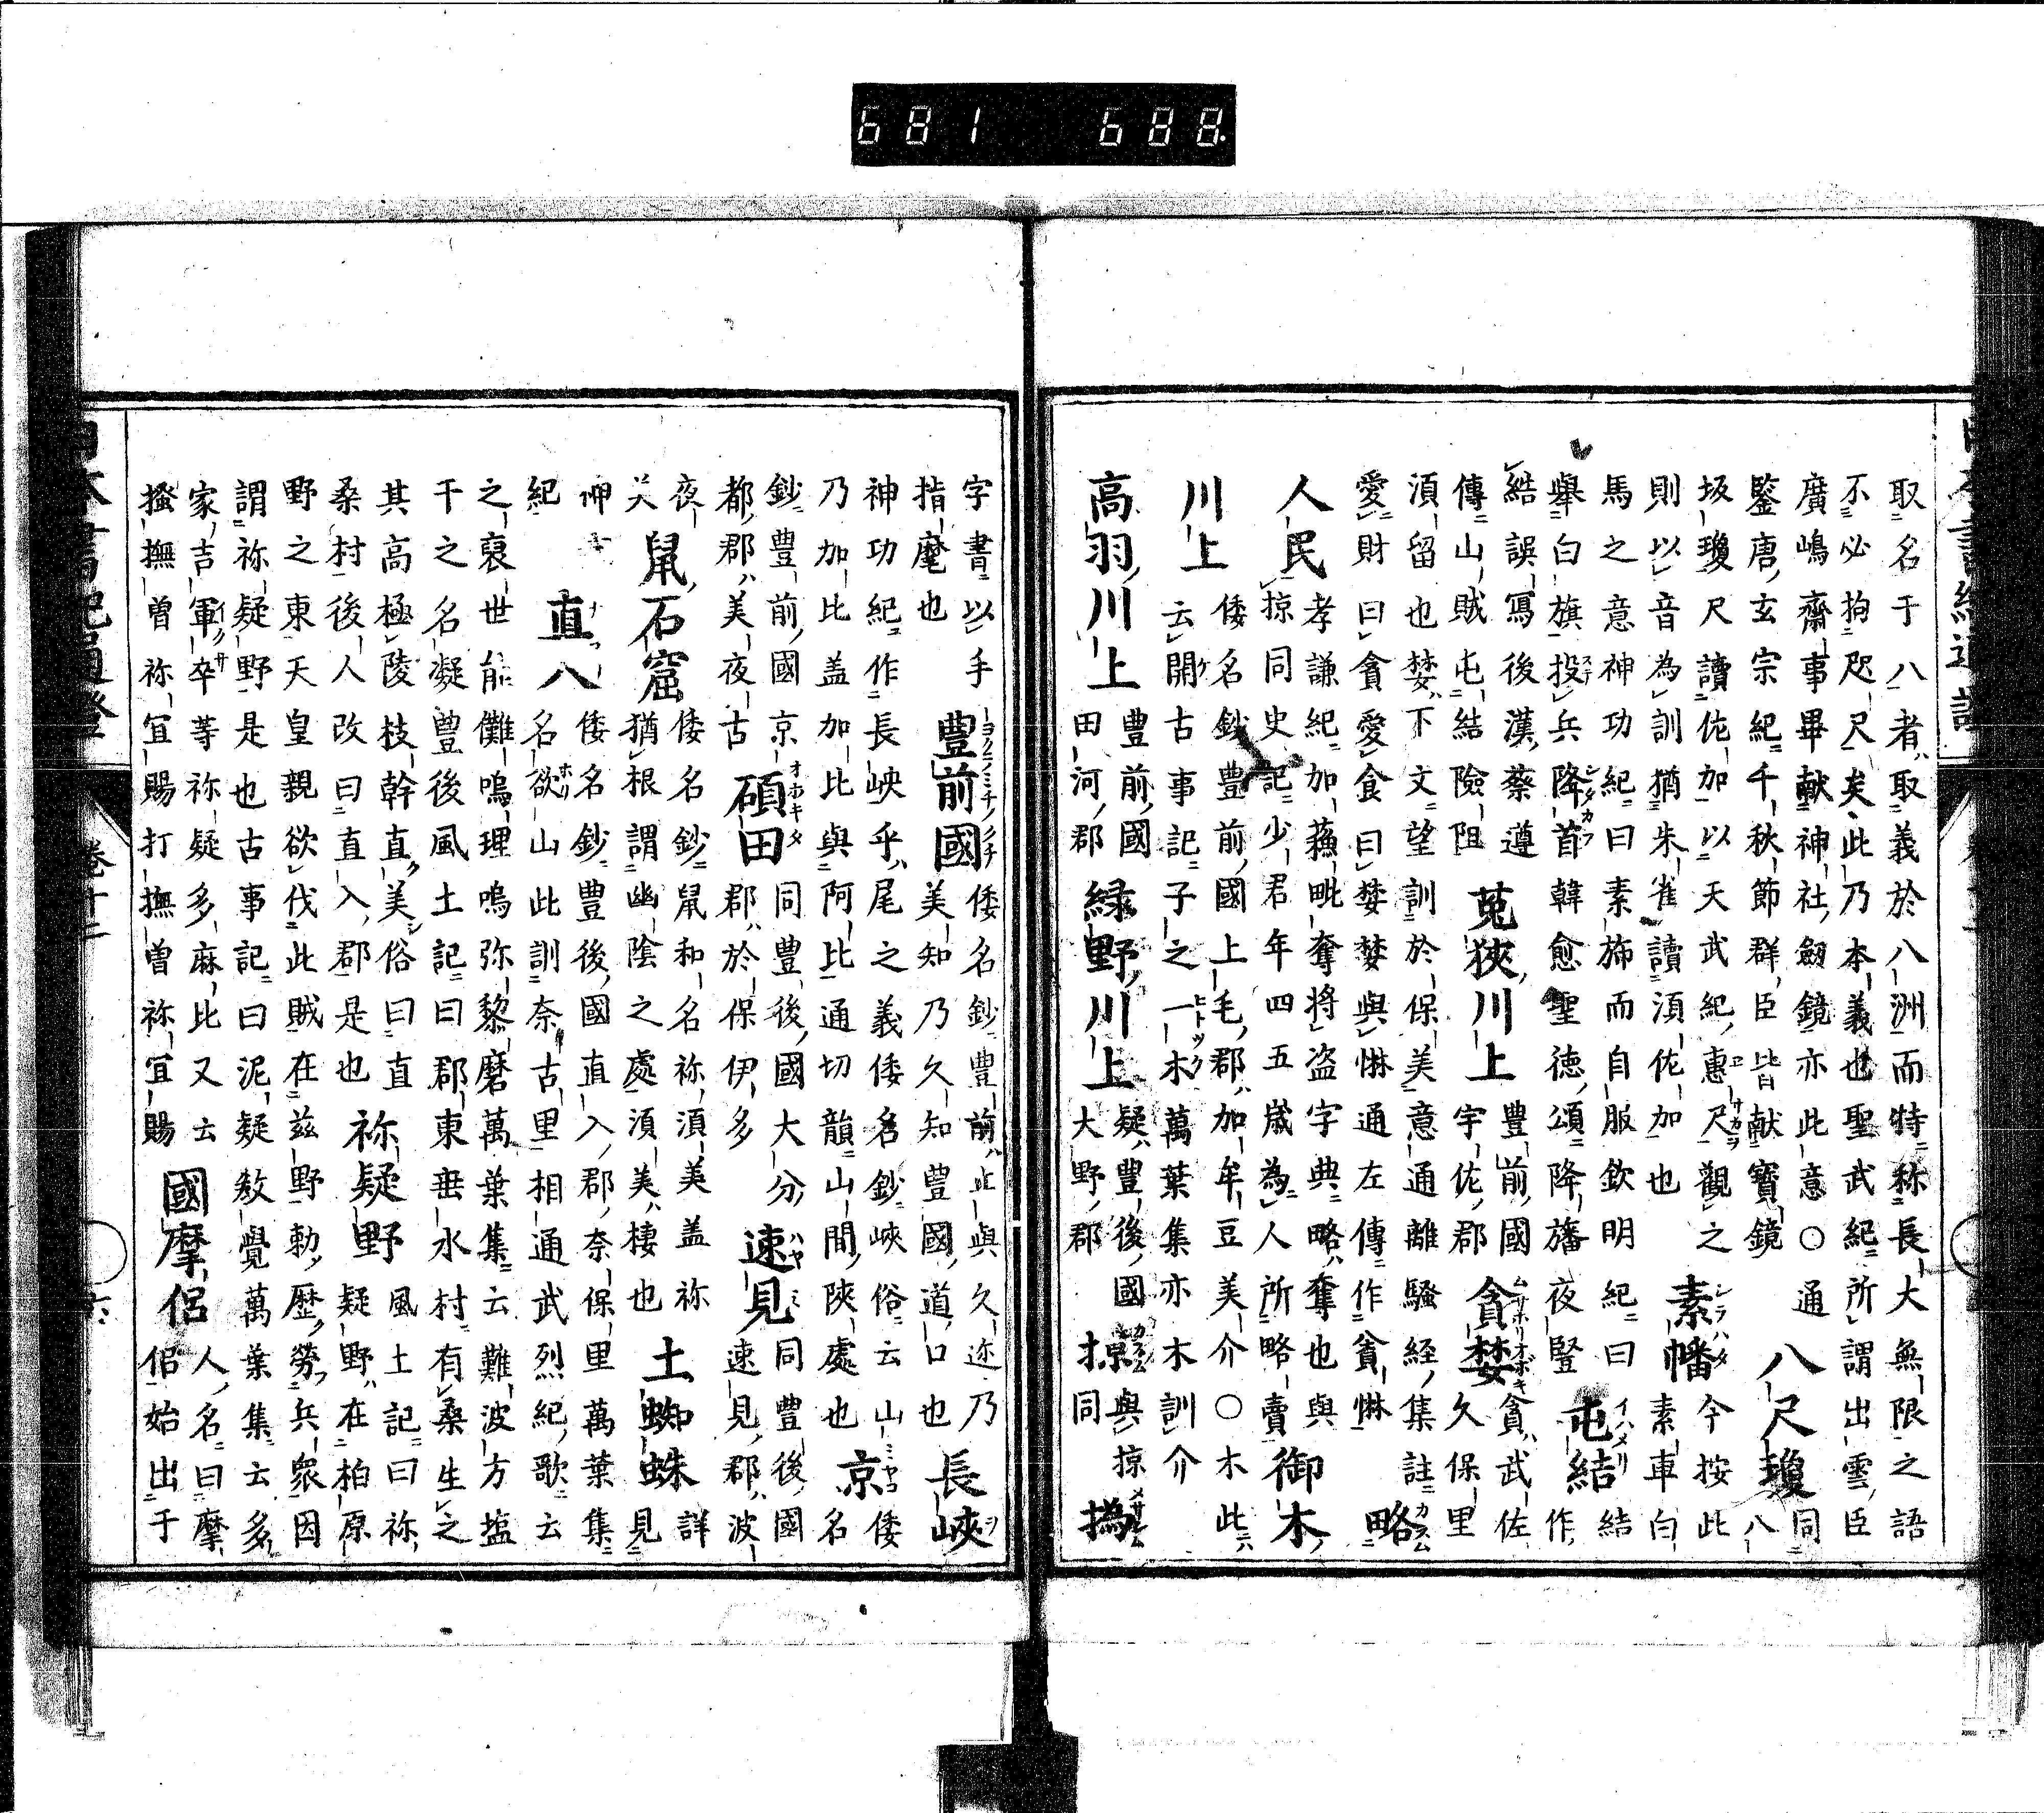 681 688
取名于八者取義於八洲而特称長大無限之語
不必拘咫尺矣此乃本義也聖武紀所謂出雲臣
廣嶋齋事畢献神社劔鏡亦此意○通 八尺瓊 同
鑒唐玄宗紀千秋節群臣皆献寳鏡 八
坂瓊尺讀佐加以天武紀惠尺觀之 素幡 今按此
則以音為訓猶朱雀讀須佐加也 素車白
馬之意神功紀曰素斾而自服欽明紀曰 屯結 結
舉白旗投兵降首韓愈聖徳頌降旛夜竪 作
結誤寫後漢蔡遵 菟狹川上 豊前國 貪婪 貪武佐
傳山賊屯結險阻 宇佐郡 久保里
須留也婪下文望訓於保美意通離騷経集註 略
愛財曰貪愛食曰婪婪與惏通左傳作貪惏
人民 孝謙紀加蘓毗奪将盗字典略奪也與 御木
掠同史記少君年四五歳為人所略賣
川上 倭名鈔豊前國上毛郡加牟豆美介○木此
云開古事記子之一木萬葉集亦木訓介
高羽川上 豊前國 緑野川上 疑豊後國 掠 與掠 撝
田河郡 大野郡 同
字書以手 豊前國 倭名鈔豊前止與久迩乃 長峽
指麾也 美知乃久知豊國道口也
神功紀作長峡乎尾之義倭名鈔峽俗云山 京 倭
乃加比盖加比與阿比通切韻山間陝處也 名
鈔豊前國京 碩田 同豊後國大分 速見 同豊後國
都郡美夜古 郡於保伊多 速見郡波
夜 鼠石窟 倭名鈔鼠和名祢須美盖祢 土蜘蛛 詳
猶根謂幽陰之處須美棲也 見
神 直八 倭名鈔豊後國直入郡奈保里萬葉集
紀 名欲山此訓奈古里相通武烈紀歌云
之裒世能儺嗚理嗚弥黎磨萬葉集云難波方塩
干之名凝豊後風土記曰郡東垂水村有桑生之
其高極陵枝幹直美俗曰直 祢疑野 風土記曰祢
桑村後人改曰直入郡是也 疑野在柏原
野之東天皇親欲伐此賊在兹野勅歴勞兵衆因
謂祢疑野是也古事記曰泥疑敎覺萬葉集云多
家吉軍卒等祢疑多麻比又云 國摩侶 人名曰摩
搔撫曽祢宜賜打撫曽祢宜賜 侶始出于
卷十二
六